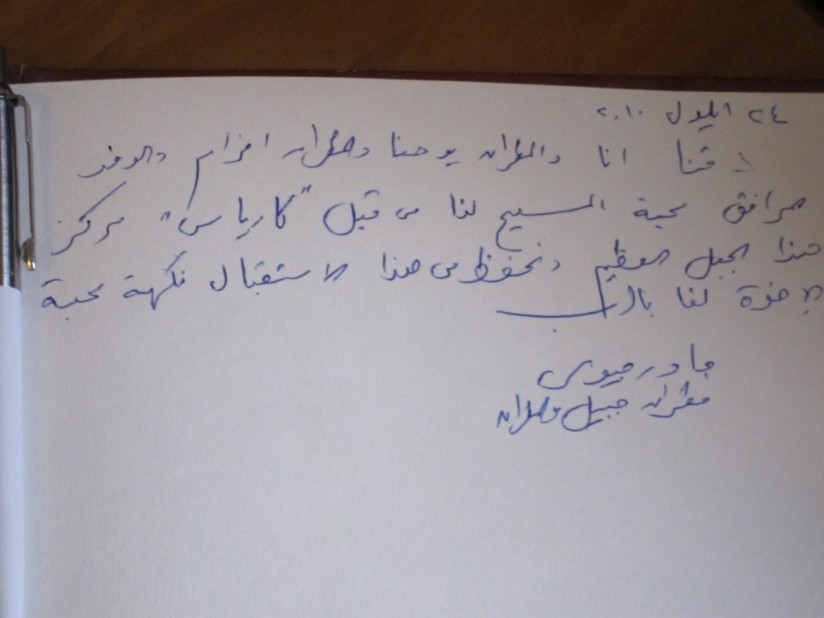 ٢٤ ايلول ٢٠١٠
ذقنا انا والمطران يوحنا والمطران افرام والوفد
المرافق محبة المسيح لنا من قبل "كارياس" مركز
هذا الجبل العظيم ونحفظ من هذا الاستقبال نكهة محبة
الاخوة لنا بالرب
مطران جبيل